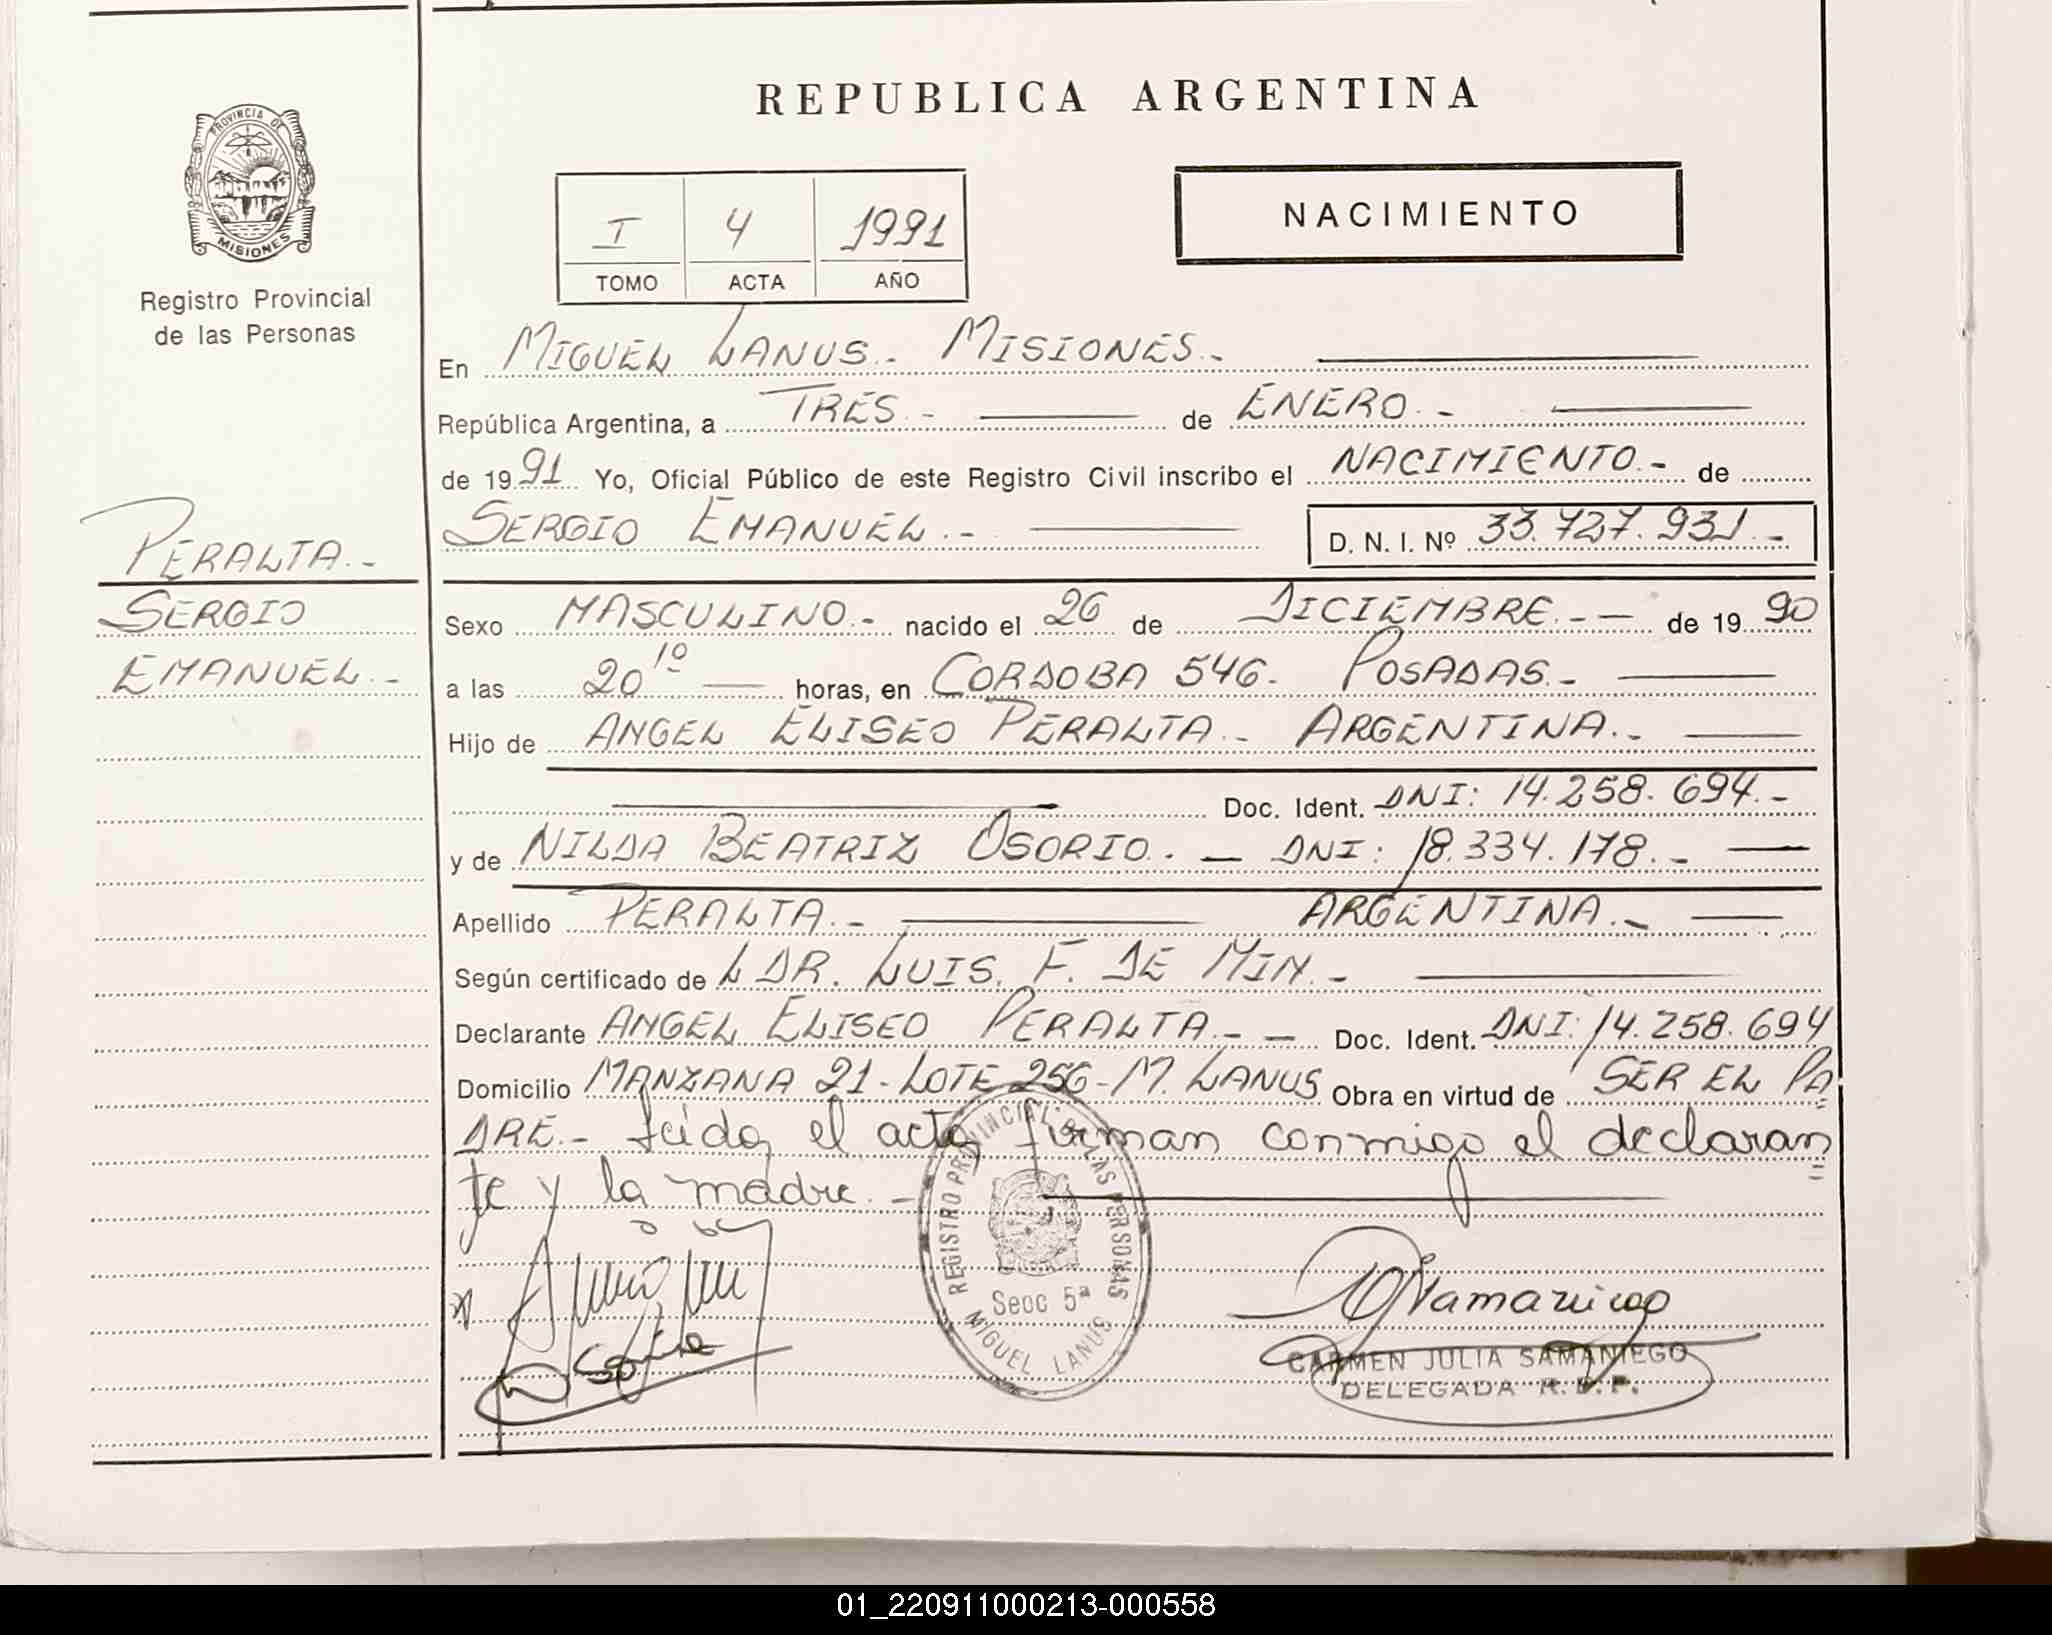 REPUBLICA ARGENTINA
PROVINCIA DE
MISIONES
Registro Provincial
de las Personas
NACIMIENTO
I 4 1991
TOMO ACTA AÑO
En MIGUEL LANUS.- MISIONES.-
República Argentina, a TRES.- de ENERO.-
de 1991 Yo, Oficial Público de este Registro Civil inscribo el NACIMIENTO.- de
SERGIO EMANUEL.- D. N. I. Nº 33.727.931.-
PERALTA.-
SERGIO
EMANUEL.-
Sexo MASCULINO.- nacido el 26 de DICIEMBRE.-- de 1990
a las 20 10 horas, en CORDOBA 546. POSADAS.-
Hijo de ANGEL ELISEO PERALTA.- ARGENTINA.-
Doc. Ident. DNI: 14.258.694.-
y de NILDA BEATRIZ OSORIO.- DNI: 18.334.178.-
Apellido PERALTA.- ARGENTINA.-
Según certificado de L DR. LUIS. F. DE MIN.-
Declarante ANGEL ELISEO PERALTA.-- Doc. Ident. DNI: 14.258.694
Domicilio MANZANA 21-LOTE 256-M. LANUS Obra en virtud de SER EL PA
DRE.- Leída el acta firman conmigo el declaran
te y la madre.-
REGISTRO PROVINCIAL DE LAS PERSONAS
Secc 5ª
MIGUEL LANUS
CARMEN JULIA SAMANIEGO
DELEGADA R.P.P.
01_220911000213-000558